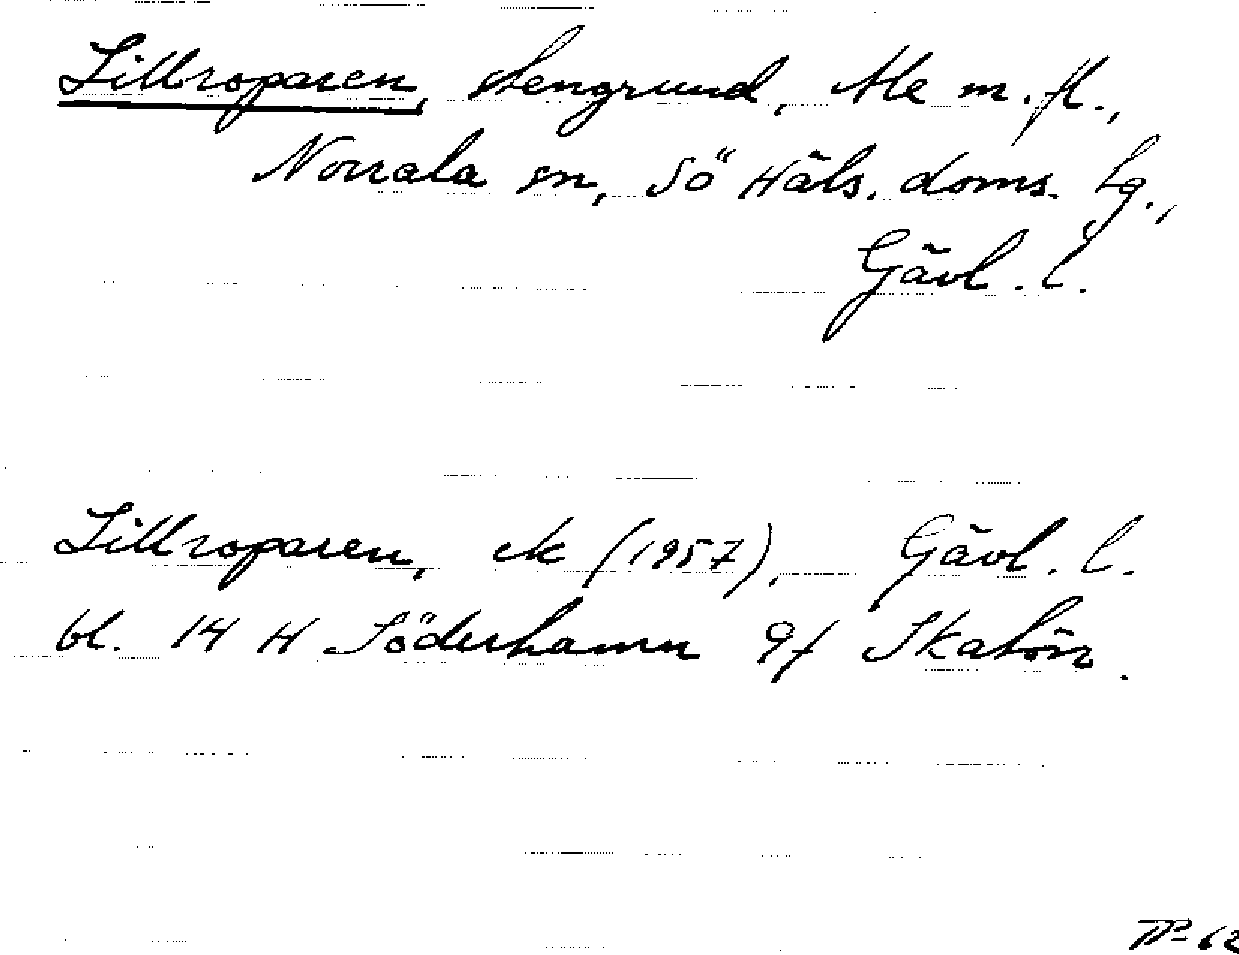 Lillroparen, stengrund, Ale m. fl.,
Norrala sn, Sö Häls. doms. lg.,
Gävl. l.
Lillroparen, ek (1957), Gävl. l.
bl. 14 H Söderhamn 9f Skatön.
62